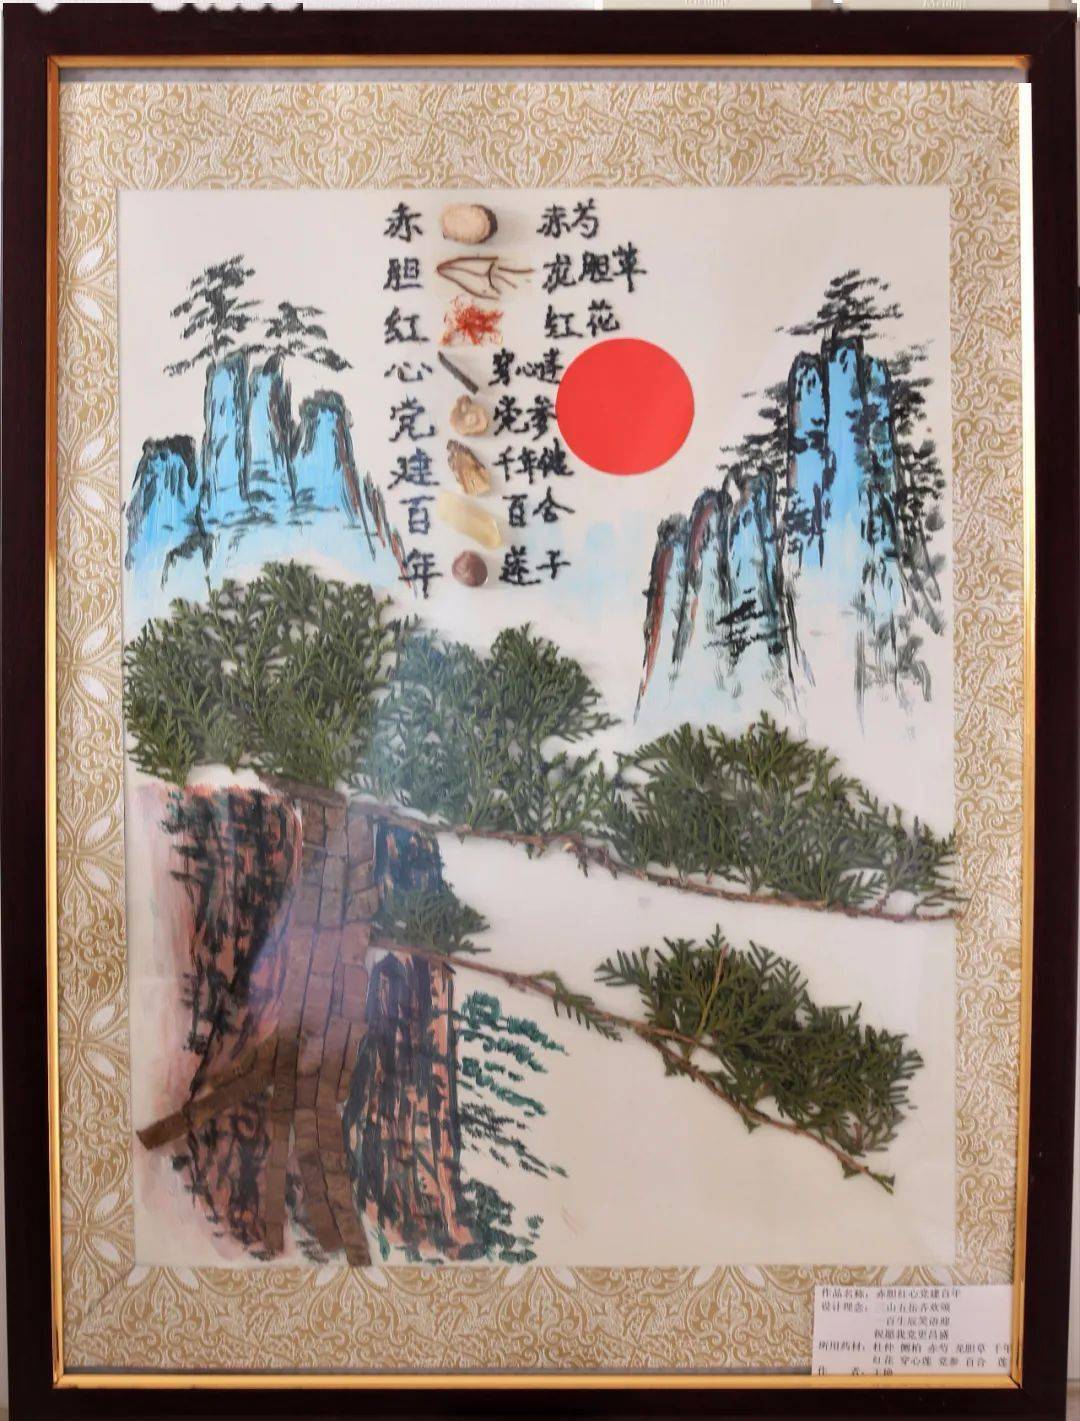 赤 赤芍
胆 龙胆草
红 红花
心 穿心莲
党 党参
建 千年健
百 百合
年 莲子
作品名称：赤胆红心党建百年
设计理念：三山五岳齐欢颂
一百生辰笑语迎
祝愿我党更昌盛
所用药材：杜仲 侧柏 赤芍 龙胆草 千年
红花 穿心莲 党参 百合 莲
作 者：王